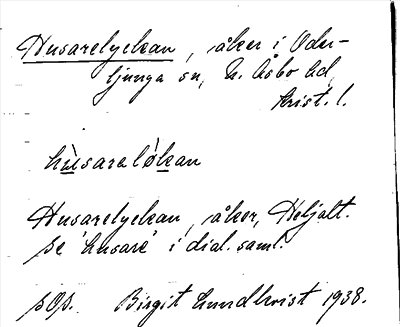 Husarelyckan, åker i Oder-
ljunga sn, N. Åsbo hd,
Krist. l.
hùsaralö̀kan
Husarelyckan, åker, Heljalt.
Se 'husare' i dial. saml.
sOp. Birgit Lundkvist 1938.